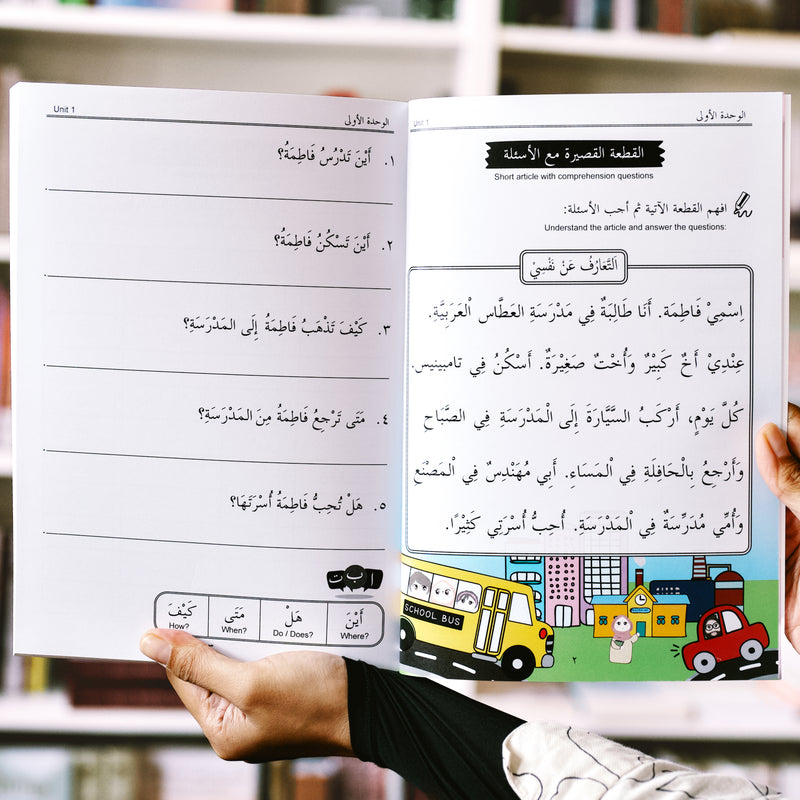 Unit 1
الوحدة الأولى
القطعة القصيرة مع الأسئلة
Short article with comprehension questions
افهم القطعة الآتية ثم أجب الأسئلة:
Understand the article and answer the questions:
اَلتَّعَارُفُ عَنْ نَفْسِيْ
اِسْمِيْ فَاطِمَة. أَنَا طَالِبَةٌ فِي مَدْرَسَةِ العَطَّاس الْعَرَبِيَّةِ.
عِنْدِيْ أَخٌ كَبِيْرٌ وَأُخْتٌ صَغِيْرَةٌ. أَسْكُنُ فِي تامبينيس.
كُلَّ يَوْمٍ، أَرْكَبُ السَّيَّارَةَ إِلَى الْمَدْرَسَةِ فِي الصَّبَاحِ
وَأَرْجِعُ بِالْحَافِلَةِ فِي الْمَسَاءِ. أَبِي مُهَنْدِسٌ فِي الْمَصْنَعِ
وَأُمِّي مُدَرِّسَةٌ فِي الْمَدْرَسَةِ. أُحِبُّ أُسْرَتِي كَثِيْرًا.
SCHOOL BUS
٢
Unit 1
الوحدة الأولى
١. أَيْنَ تَدْرُسُ فَاطِمَةُ؟
٢. أَيْنَ تَسْكُنُ فَاطِمَةُ؟
٣. كَيْفَ تَذْهَبُ فَاطِمَةُ إِلَى المَدْرَسَةِ؟
٤. مَتَى تَرْجِعُ فَاطِمَةُ مِنَ المَدْرَسَةِ؟
٥. هَلْ تُحِبُّ فَاطِمَةُ أُسْرَتَهَا؟
ا ب ت
أَيْنَ هَلْ مَتَى كَيْفَ
Where? Do / Does? When? How?